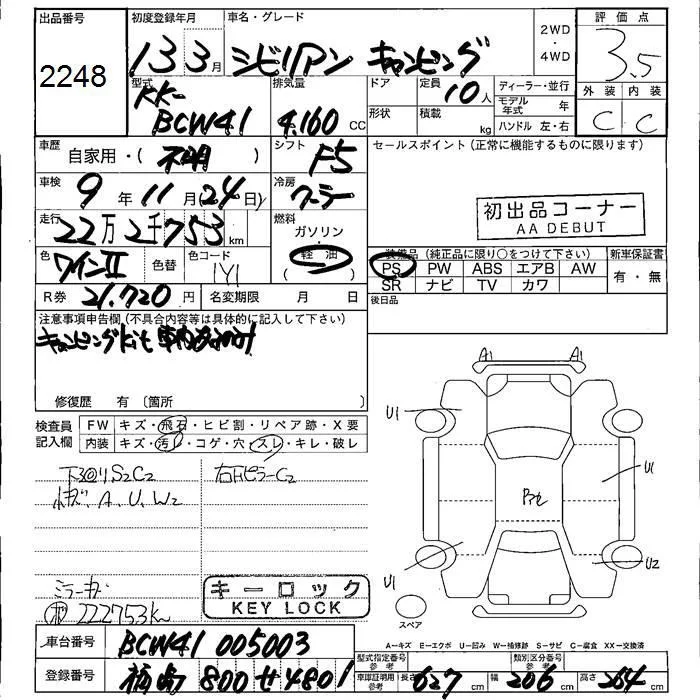 出品番号 初度登録年月 車名・グレード 2WD・4WD 評価点
2248 13 3月 シビリアン キャンピング 3.5
型式 排気量 ドア 定員 10人 ディーラー・並行 外装 内装
KK-BCW41 4160 CC 形状 積載 kg モデル年式 年 C C
ハンドル 左・右
車歴 自家用・(不明) シフト F5 セールスポイント(正常に機能するものに限ります)
車検 9年11月(24日) 冷房 クーラー
初出品コーナー
AA DEBUT
走行 22万2千753km 燃料 ガソリン・軽油 ( )
装備品(純正品に限り○をつけて下さい) 新車保証書
色 ワインII 色替 色コード 1Y1
PS PW ABS エアB AW 有・無
SR ナビ TV カワ
R券 21,720円 名変期限 月 日 後日品
注意事項申告欄(不具合内容等は具体的に記入して下さい)
キャンピングKit 車内
修復歴 有 〔箇所
検査員記入欄 FW キズ・飛石・ヒビ割・リペア跡・X要
内装 キズ・汚れ・コゲ・穴・スレ・キレ・破レ
下回りS2C2 右RピラーC2
A、U、W2
ミラーキズ
222753km
キーロック
KEY LOCK
A1 A1
U1
U1
U1
U2
スペア
A=キズ E=エクボ U=凹み W=補修跡 S=サビ C=腐食 XX=交換済
車台番号 BCW41 005003
型式指定番号 参考 類別区分番号 参考
登録番号 800 せ 4801
車庫証明用 参考 長さ 627cm 幅 206cm 高さ 264cm